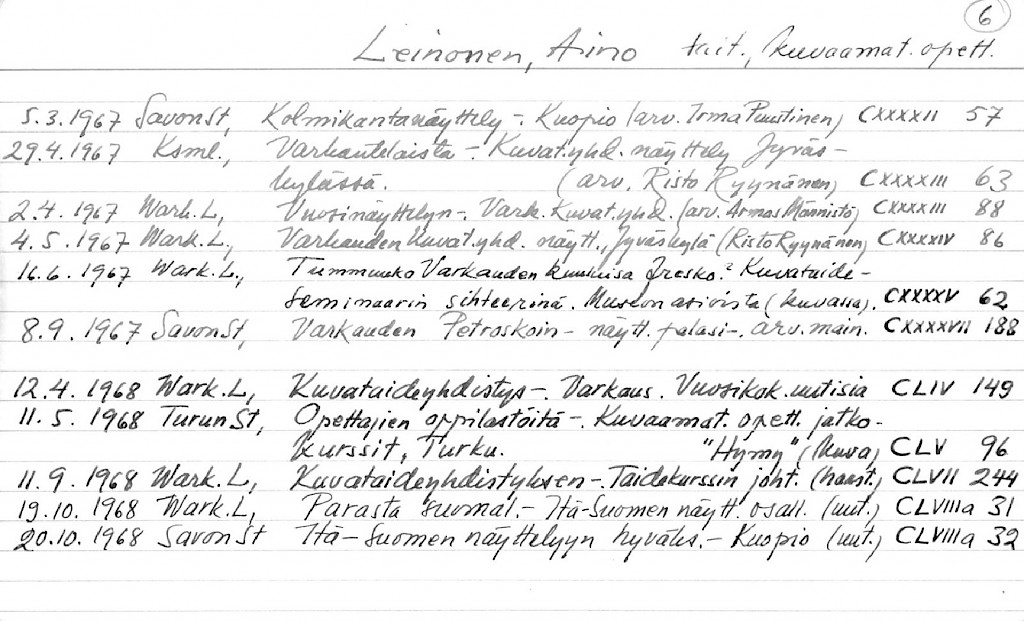 6
Leinonen, Aino tait., kuvaamat. opett.
5.3.1967 Savon St, Kolmikantanäyttely -. Kuopio (arv. Irma Puustinen) CXXXXII 57
29.4.1967 Ksml., Varkautelaista -. Kuvat.yhd. näyttely Jyväs-
kylässä. (arv. Risto Ryynänen) CXXXXIII 63
2.4.1967 Wark. L, Vuosinäyttelyn -. Vark. Kuvat.yhd. (arv. Armas Männistö) CXXXXIII 88
4.5.1967 Wark. L, Varkauden Kuvat.yhd. näytt., Jyväskylä (Risto Ryynänen) CXXXXIV 86
16.6.1967 Wark. L., Tummuuko Varkauden kuuluisa fresko? Kuvataide-
seminaarin sihteerinä. Museon asioista (kuvassa). CXXXXV 62
8.9.1967 Savon St, Varkauden Petroskoin - näytt. palasi -. arv. main. CXXXXVII 188
12.4.1968 Wark. L, Kuvataideyhdistys -. Varkaus. Vuosikok. uutisia CLIV 149
11.5.1968 Turun St, Opettajien oppilastöitä -. Kuvaamat. opett. jatko-
kurssit, Turku. "Hymy" (kuva) CLV 96
11.9.1968 Wark. L, Kuvataideyhdistyksen -. Taidekurssin joht. (haast.) CLVII 244
19.10.1968 Wark. L, Parasta suomal. - Itä-Suomen näytt. osall. (uut.) CLVIIIa 31
20.10.1968 Savon St Itä-Suomen näyttelyyn hyväks. - Kuopio (uut.) CLVIIIa 32